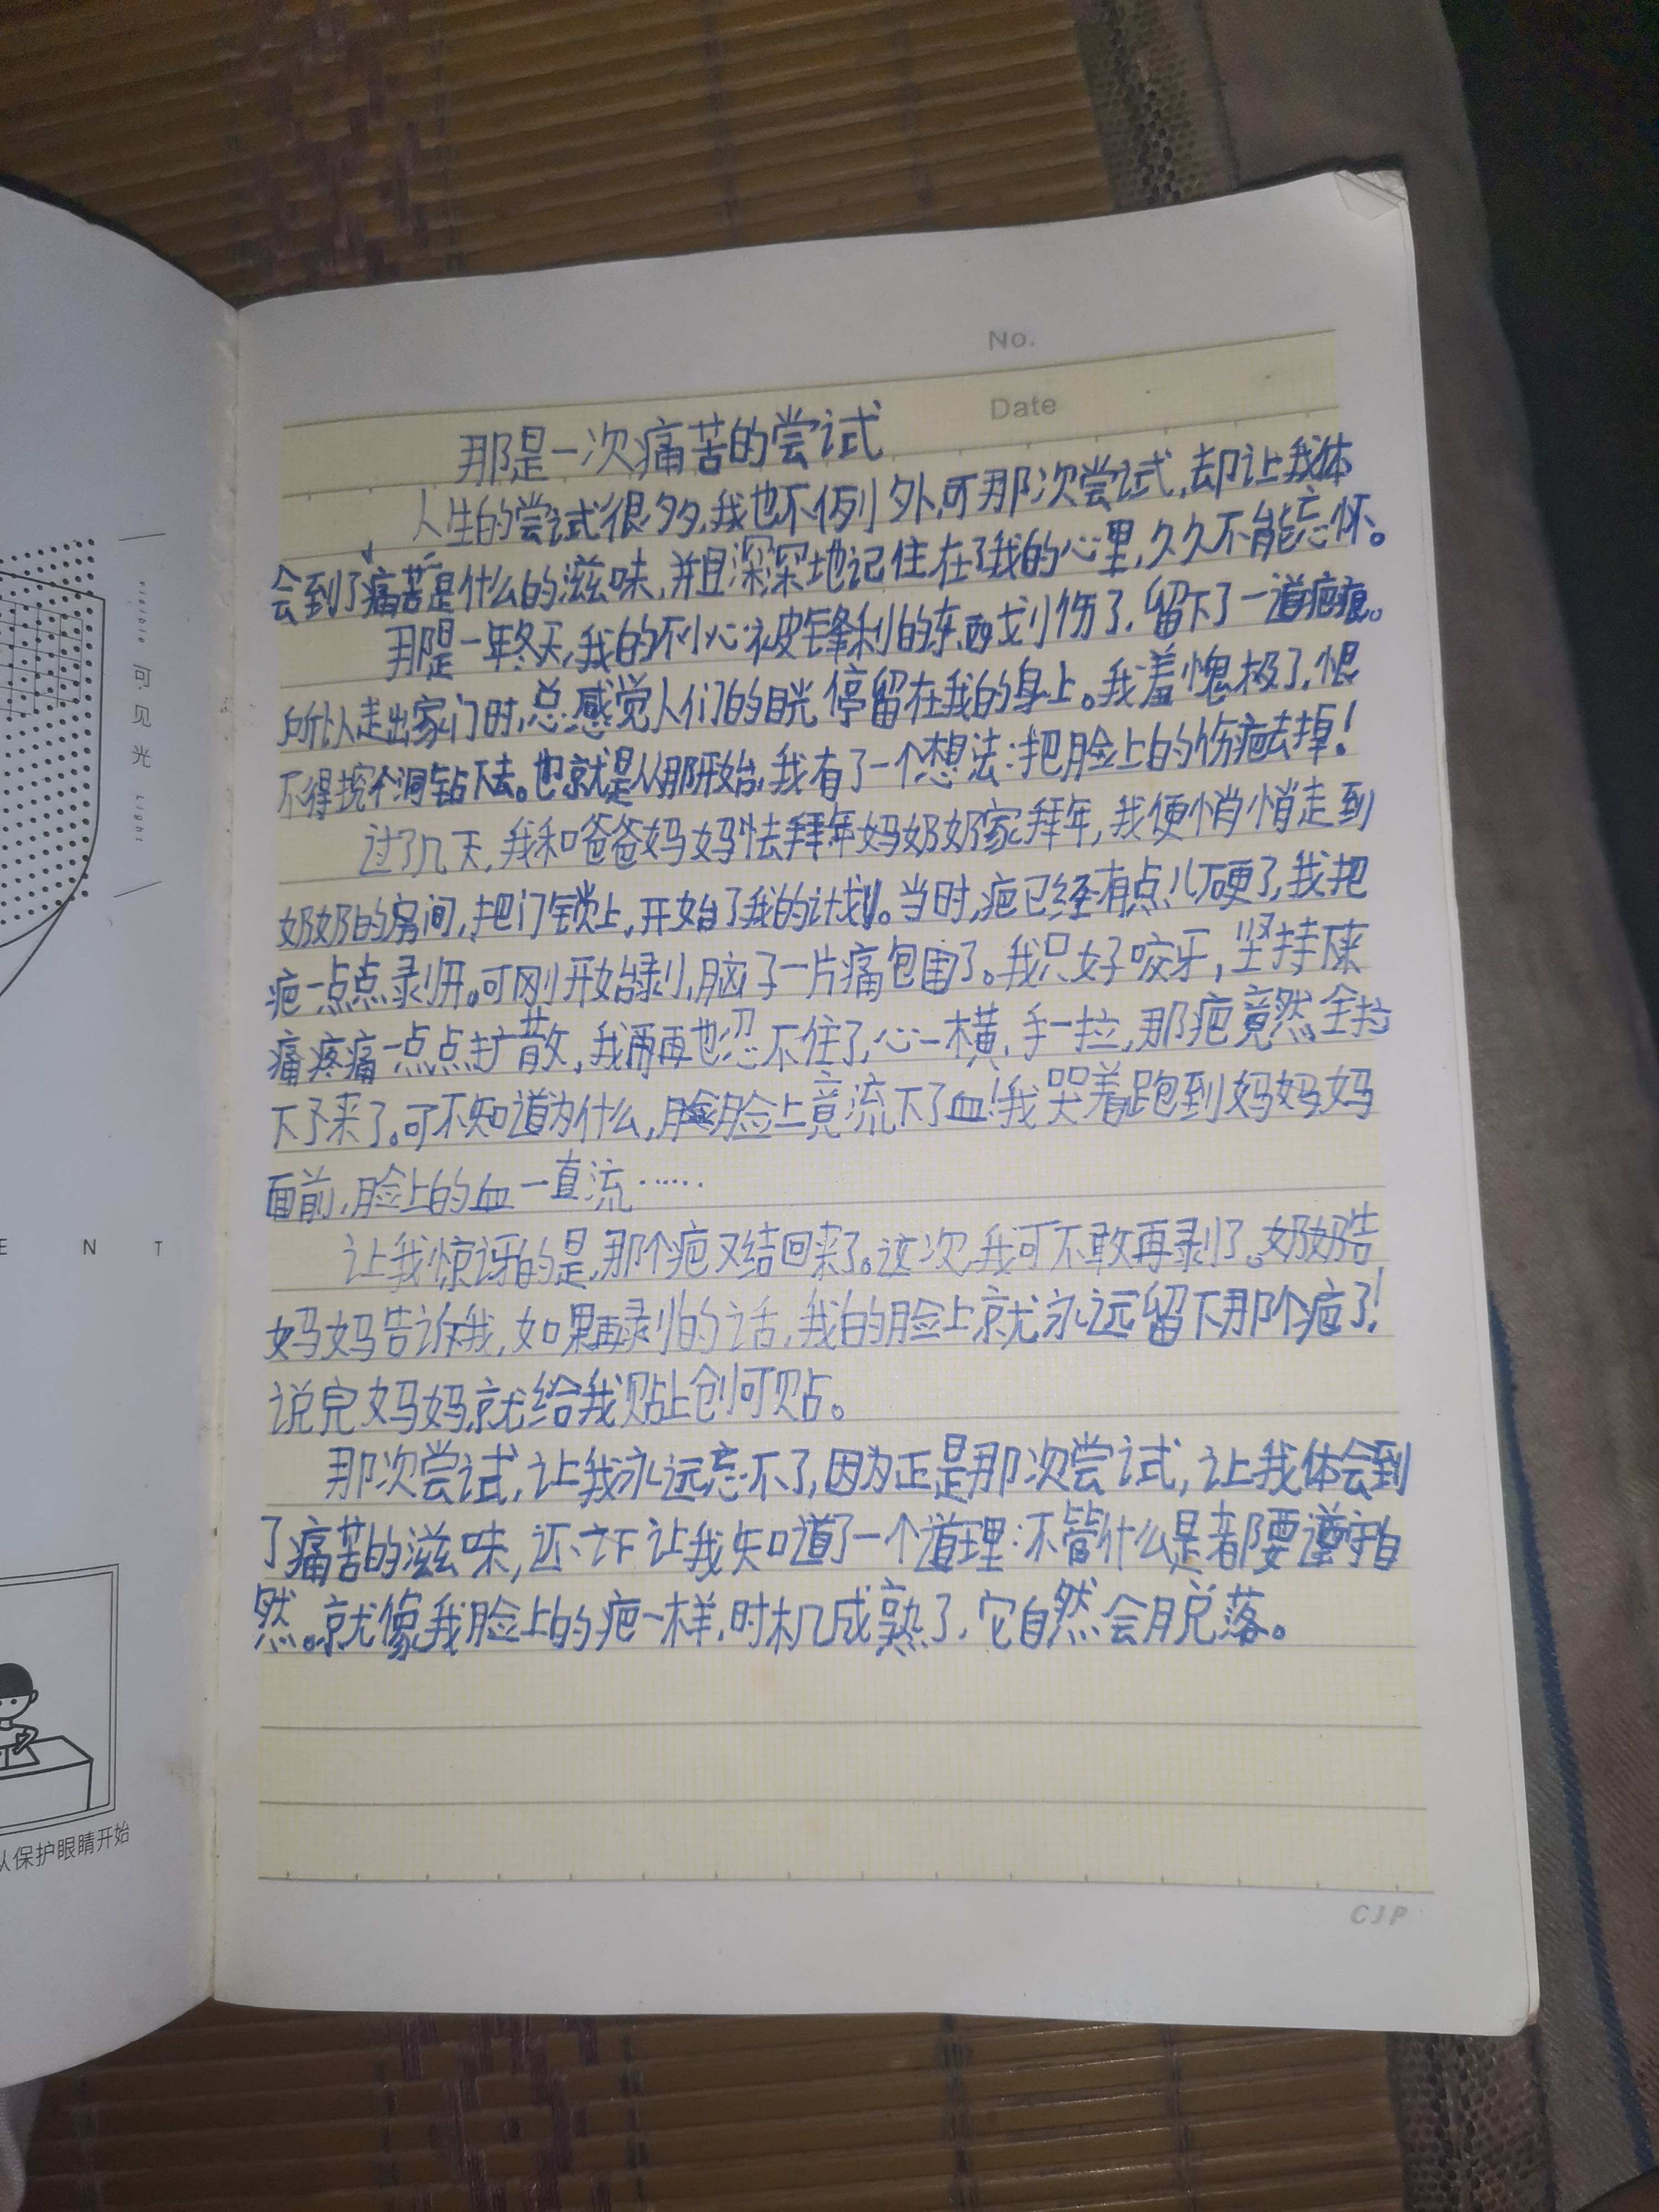 No.
Date
那是一次痛苦的尝试
人生的尝试很多,我也不例外,可那次尝试,却让我体
会到了痛苦是什么的滋味,并且深深地记住在了我的心里,久久不能忘怀。
那是一年冬天,我的不小心被锋利的东西划伤了,留下了一道疤痕。
所以走出家门时,总感觉人们的目光停留在我的身上。我羞愧极了,恨
不得挖个洞钻下去。也就是从那开始,我有了一个想法:把脸上的伤疤去掉!
过了几天,我和爸爸妈妈去拜年妈奶奶家拜年,我便悄悄走到
奶奶的房间,把门锁上,开始了我的计划。当时,疤已经有点儿硬了,我把
疤一点点剥开。可刚开始剥,脑子一片痛包围了。我只好咬牙,坚持下来
痛疼痛一点点扩散,我再再也忍不住了,心一横,手一拉,那疤竟然全拉
下了来了。可不知道为什么,脸脸上竟流下了血!我哭着跑到妈妈妈
面前,脸上的血一直流……
让我惊讶的是,那个疤又结回来了。这次,我可不敢再剥了。奶奶告
妈妈告诉我,如果再剥的话,我的脸上就永远留下那个疤了!
说完妈妈就给我贴上创可贴。
那次尝试,让我永远忘不了,因为正是那次尝试,让我体会到
了痛苦的滋味,还让我知道了一个道理:不管什么是都要遵守自
然。就像我脸上的疤一样,时机成熟了,它自然会脱落。
CJP
visible 可见光 Light
E N T
从保护眼睛开始